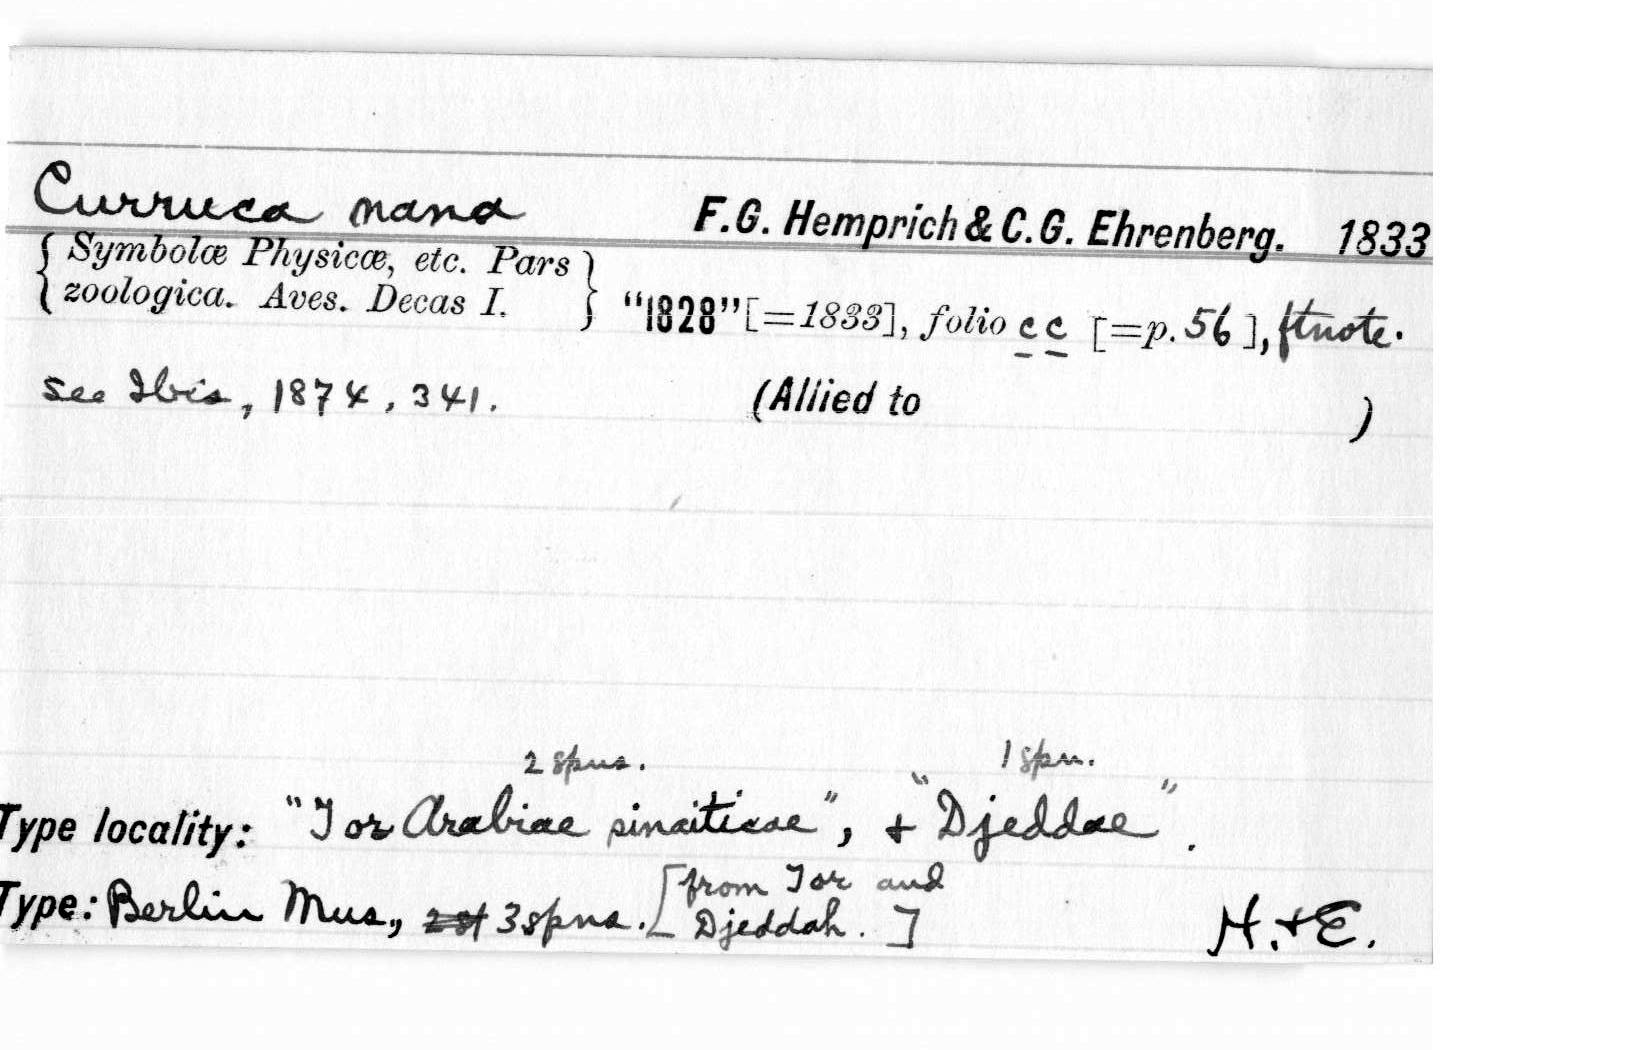 Curruca nana F.G. Hemprich & C.G. Ehrenberg. 1833
{ Symbolæ Physicæ, etc. Pars
zoologica. Aves. Decas I. } "1828" [=1833], folio cc [=p. 56], ftnote.
see Ibis, 1874, 341. (Allied to )
2 spns. 1 spn.
Type locality: "Tor Arabiae sinaiticae", + "Djeddae".
Type: Berlin Mus., 3 spns. [from Tor and
Djeddah.] H. + E.